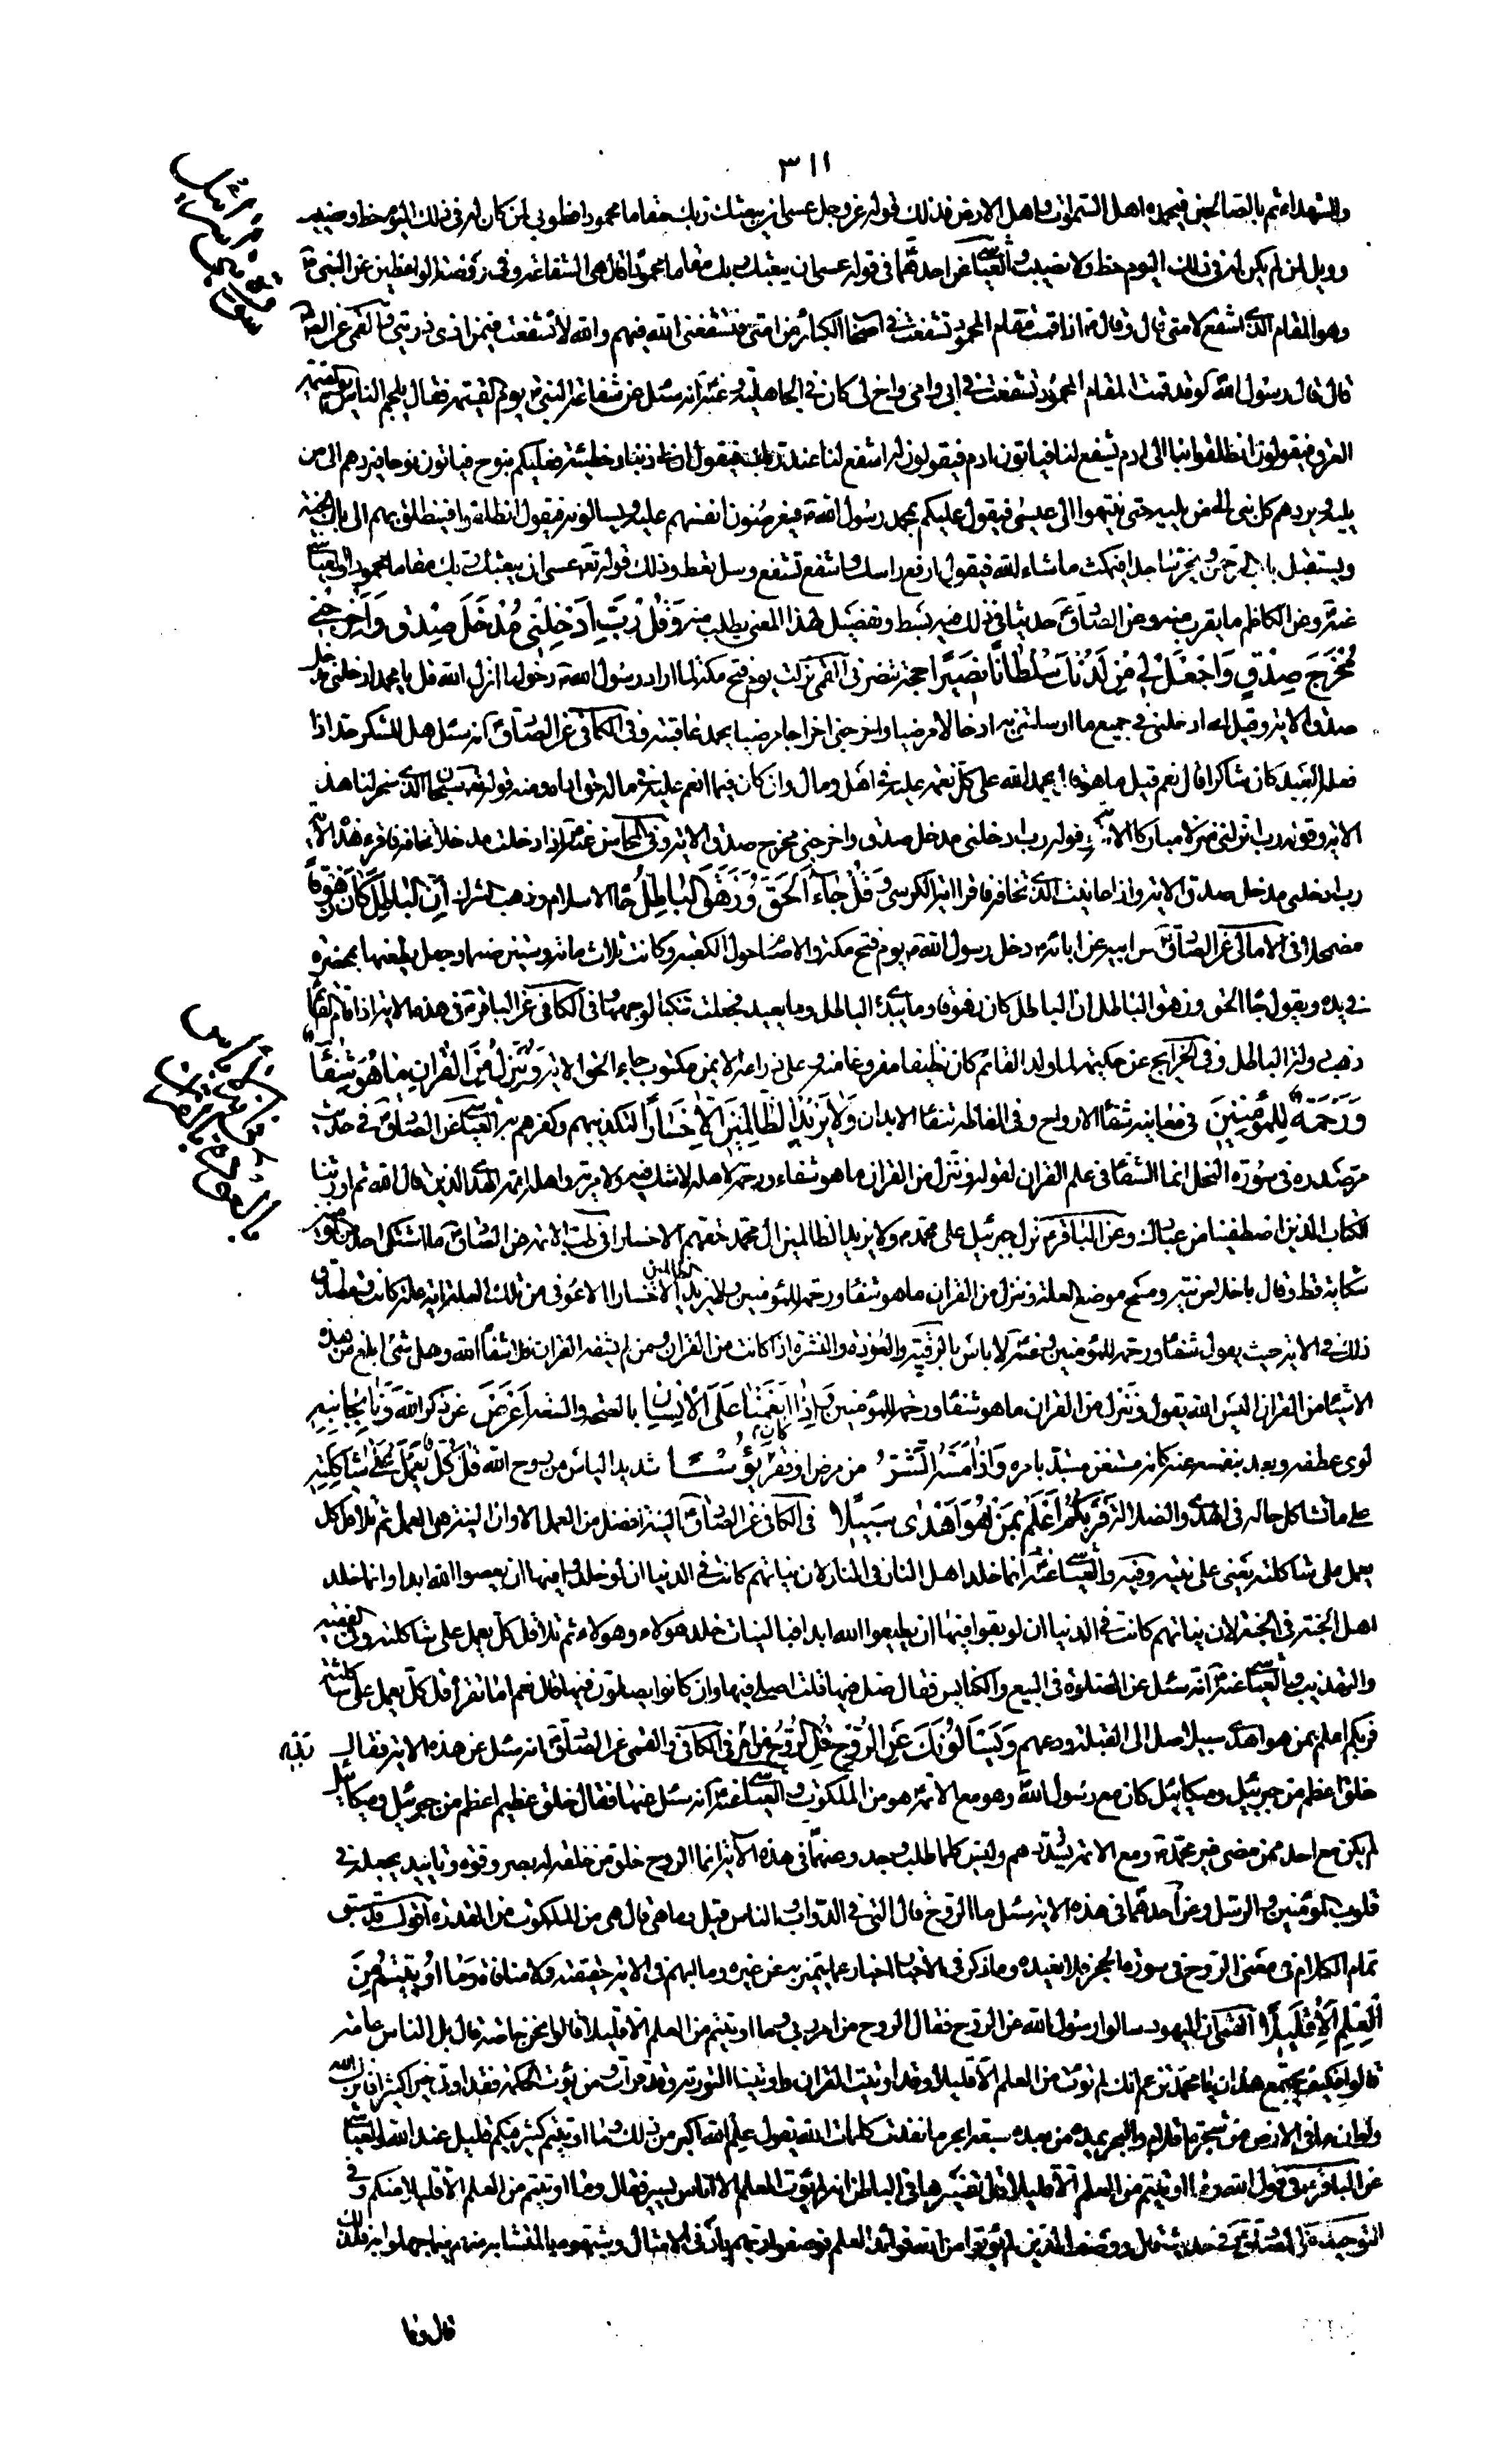 ٣١١
والشهداء ثم بالصالحين فيحمده اهل السموات واهل الارض فذلك قوله عز وجل عسى ان يبعثك ربك مقاما محمودا فطوبى لمن كان له فى ذلك اليوم حظ ونصيب
وويل لمن لم يكن له فى ذلك اليوم حظ ولا نصيب والعياشى عن احدهما فى قوله عسى ان يبعثك ربك مقاما محمودا قال هى الشفاعة وفى روضة الواعظين عن النبى ص
وهو المقام الذى اشفع لامتى قال وقال ص اذا قمت مقام المحمود تشفعت فى اصحاب الكبائر من امتى فتشفعنى الله فيهم والله لا تشفعت فيمن اذى ذريتى والقمى عن الصادق
قال قال رسول الله لو قد قمت المقام المحمود لشفعت فى ابى وامى واخ لى كان فى الجاهلية وعنه انه سئل عن شفاعة النبى ص يوم القيمة فقال يلجم الناس يوم القيمة
العرق فيقولون انطلقوا بنا الى ادم يشفع لنا فياتون ادم فيقولون له اشفع لنا عند ربك فيقول ان لى ذنبا وخطيئة فعليكم بنوح فياتون نوحا فيردهم الى من
يليه ويردهم كل نبى الى من يليه حتى ينتهوا الى عيسى فيقول عليكم بمحمد رسول الله ص فيعرضون انفسهم عليه ويسالونه فيقول انطلقوا فينطلق بهم الى باب الجنة
ويستقبل باب الرحمن ويخر ساجدا فيمكث ما شاء الله فيقول ارفع راسك واشفع تشفع وسل تعط وذلك قوله تعالى عسى ان يبعثك ربك مقاما محمودا والعياشى
عنه وعن الكاظم ما يقرب منه وعن الصادق حديثا فى ذلك فيه بسط وتفصيل لهذا المعنى يطلب منه وَقُلْ رَبِّ اَدْخِلْنى مُدْخَلَ صِدْقٍ وَاَخْرِجْنى
مُخْرَجَ صِدْقٍ وَاجْعَلْ لى مِنْ لَدُنْكَ سُلْطانًا نَصيرًا حجة تنصرنى القمى نزلت يوم فتح مكة لما اراد رسول الله ص دخولها انزل الله قل يا محمد ادخلنى مدخل
صدق الاية وقيل اى ادخلنى فى جميع ما ارسلتنى به ادخالا مرضيا واخرجنى اخراجا مرضيا يحمد عاقبته وفى الكافى عن الصادق انه سئل هل للشكر حد اذا
فعله العبد كان شاكرا قال نعم قيل ما هو قال يحمد الله على كل نعمة عليه فى اهل ومال وان كان فيما انعم عليه فى ماله حق اداه ومنه قوله تعالى سبحان الذى سخر لنا هذا
الاية وقوله رب انزلنى منزلا مباركا الاية وقوله رب ادخلنى مدخل صدق واخرجنى مخرج صدق الاية وفى المحاسن عنه اذا دخلت مدخلا تخافه فاقرء هذه الاية
رب ادخلنى مدخل صدق الاية واذا عاينت الذى تخافه فاقرا اية الكرسى وَقُلْ جاءَ الْحَقُّ وَزَهَقَ الْباطِلُ جاء الاسلام وذهب الشرك اِنَّ الْباطِلَ كانَ زَهُوقًا
مضمحلا فى الامالى عن الصادق عن ابيه عن ابائه دخل رسول الله ص يوم فتح مكة والاصنام حول الكعبة وكانت ثلاث مائة وستين صنما وجعل يطعنها بمخصرة
فى يده ويقول جاء الحق وزهق الباطل ان الباطل كان زهوقا وما يبدئ الباطل وما يعيد فجعلت تنكب لوجهها وفى الكافى عن الباقر ع فى هذه الاية اذا قام القائم
ذهبت دولة الباطل وفى الخرايج عن حكيمة لما ولد القائم كان نظيفا مفروغا منه وعلى ذراعه الايمن مكتوب جاء الحق الاية وَنُنَزِّلُ مِنَ الْقُرْآنِ ما هُوَ شِفاءٌ
وَرَحْمَةٌ لِلْمُؤْمِنينَ فى معانيه شفاء الارواح وفى الفاظه شفاء الابدان وَلا يَزيدُ الظّالِمينَ اِلّا خَسارًا لتكذيبهم وكفرهم به العياشى عن الصادق فى حديث
مر صدره فى سورة النحل انما الشفاء فى علم القرآن لقوله وننزل من القرآن ما هو شفاء ورحمة لاهله لا شك فيه ولا مرية واهله ائمة الهدى الذين قال الله ثم اورثنا
الكتاب الذين اصطفينا من عبادنا وعن الباقر ع نزل جبرئيل على محمد ص ولا يزيد الظالمين آل محمد حقهم الا خسارا فى طب الائمة عن الصادق ما اشتكى احد من المؤمنين
شكاية قط وقال باخلاص نية ومسح موضع العلة وننزل من القرآن ما هو شفاء ورحمة للمؤمنين ولا يزيد الظالمين الا خسارا الا عوفى من تلك العلة اية علة كانت ومصداق
ذلك فى الاية حيث يقول شفاء ورحمة للمؤمنين وعنه لا باس بالرقية والعوذة والنشرة اذا كانت من القرآن ومن لم يشفه القرآن فلا شفاه الله وهل شئ ابلغ من هذه
الاشياء من القرآن اليس الله يقول وننزل من القرآن ما هو شفاء ورحمة للمؤمنين وَاِذا اَنْعَمْنا عَلَى الْاِنْسانِ بالصحة والسعة اَعْرَضَ عن ذكر الله وَنَأى بِجانِبِه
لوى عطفه وبعد بنفسه عنه كانه مستغن مستبد بامره وَاِذا مَسَّهُ الشَّرُّ من مرض او فقر كانَ يَؤُسًا شديد الياس من روح الله قُلْ كُلٌّ يَعْمَلُ عَلى شاكِلَتِه
على ما تشاكل حاله فى الهدى والضلالة فَرَبُّكُمْ اَعْلَمُ بِمَنْ هُوَ اَهْدى سَبيلًا فى الكافى عن الصادق النية افضل من العمل الا وان النية هى العمل ثم تلا قل كل
يعمل على شاكلته يعنى على نيته وفيه والعياشى عنه انما خلد اهل النار فى النار لان نياتهم كانت فى الدنيا ان لو خلدوا فيها ان يعصوا الله ابدا وانما خلد
اهل الجنة فى الجنة لان نياتهم كانت فى الدنيا ان لو بقوا فيها ان يطيعوا الله ابدا فبالنيات خلد هؤلاء وهؤلاء ثم تلا قل كل يعمل على شاكلته وفى الفقيه
والتهذيب والعياشى عنه انه سئل عن الصلوة فى البيع والكنايس فقال صل فيها قلت اصلى فيها وان كانوا يصلون فيها قال نعم اما تقرأ قل كل يعمل على شاكلته
فربكم اعلم بمن هو اهدى سبيلا صل الى القبلة ودعهم وَيَسْأَلُونَكَ عَنِ الرُّوحِ قُلِ الرُّوحُ مِنْ اَمْرِ رَبّى فى الكافى والقمى عن الصادق انه سئل عن هذه الاية فقال
خلق اعظم من جبرئيل وميكائيل كان مع رسول الله وهو مع الائمة هو من الملكوت والعياشى عنه انه سئل عنها فقال خلق عظيم اعظم من جبرئيل وميكائيل
لم يكن مع احد ممن مضى غير محمد ص ومع الائمة يسددهم وليس كلما طلب وجد وعنهما فى هذه الاية انما الروح خلق من خلقه له بصر وقوة وتاييد يجعله فى
قلوب المؤمنين والرسل وعن احدهما فى هذه الاية سئل ما الروح قال التى فى الدواب والناس قيل وما هى قال هى من الملكوت من القدرة اقول قد سبق
تمام الكلام فى معنى الروح فى سورة الحجر فلا نعيده وما ذكر فى الاخبار اخبار عما يتميز به عن غيره وما ابهم فى الاية حقيقته ولا منافاة وَما اُوتيتُمْ مِنَ
الْعِلْمِ اِلّا قَليلًا القمى ان اليهود سالوا رسول الله عن الروح فقال الروح من امر ربى وما اوتيتم من العلم الا قليلا قالوا نحن خاصة قال بل الناس عامة
قالوا فكيف يجتمع هذان يا محمد تزعم انك لم تؤت من العلم الا قليلا وقد اوتيت القرآن واوتينا التورية وقد قرات ومن يؤت الحكمة فقد اوتى خيرا كثيرا فانزل الله
ولو ان ما فى الارض من شجرة اقلام والبحر يمده من بعده سبعة ابحر ما نفدت كلمات الله يقول علم الله اكبر من ذلك وما اوتيتم كثير فيكم قليل عند الله والعياشى
عن الباقر ع فى قول الله وما اوتيتم من العلم الا قليلا قال تفسيرها فى الباطن انه لم يؤت العلم الا اناس يسير فقال وما اوتيتم من العلم الا قليلا منكم وفى
التوحيد عن الصادق فى حديث قال ووصف الذين لم يؤتوا من الله فوائد العلم فوصفوا ربهم بادنى الامثال وشبهوه بالمتشابه منهم فيما جهلوا به فلذلك
قال وما